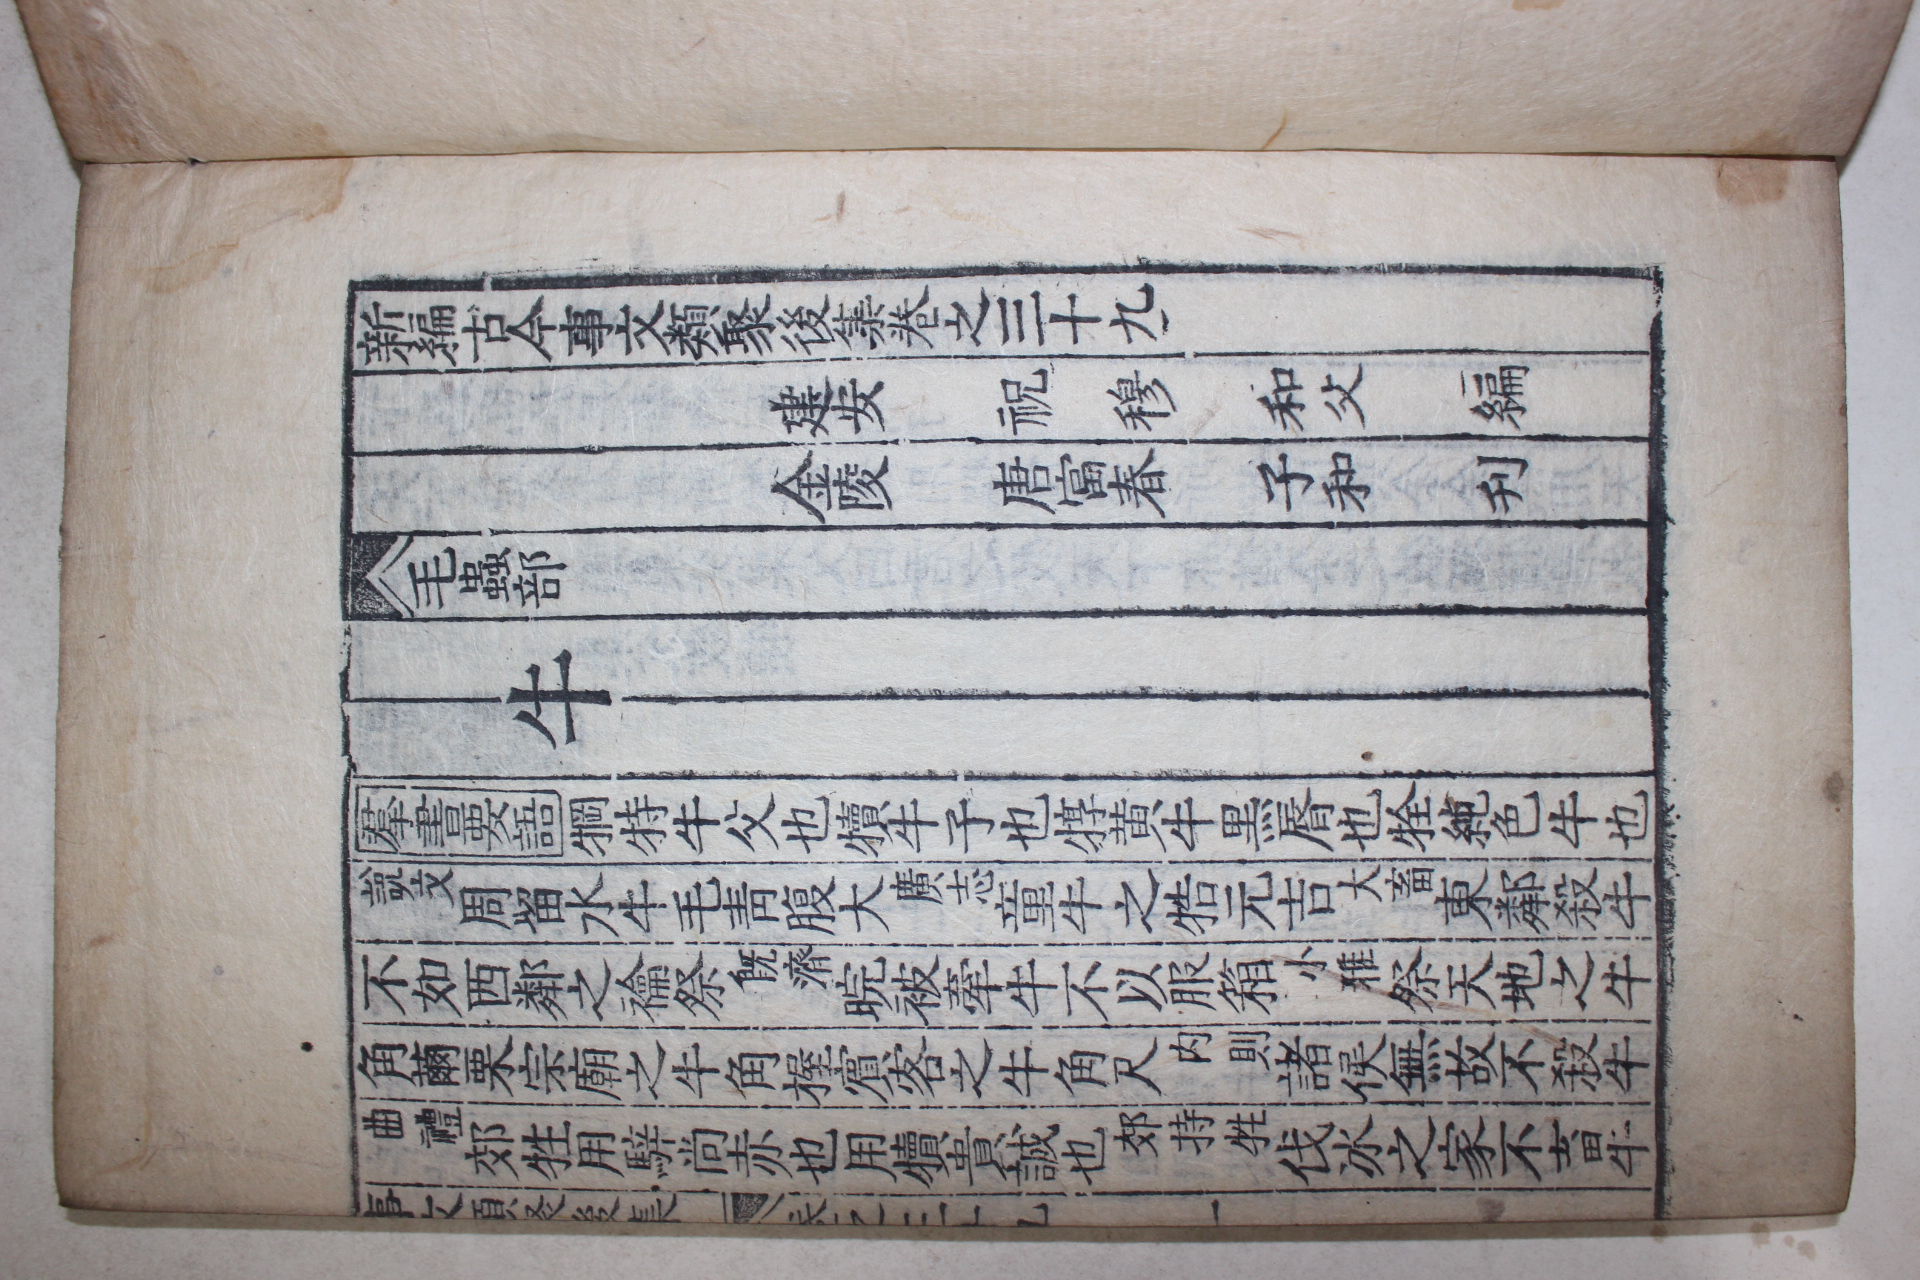 新編古今事文類聚後集卷之三十九
建安 祝 穆 和父 編
金陵 唐富春 子和 刋
毛蟲部
牛
羣書要語 犅特牛父也犢牛子也犉黄牛黒脣也牷純色牛也
說文 周留水牛毛青腹大 廣志 童牛之牿元吉 大畜 東鄰殺牛
不如西鄰之禴祭 既濟 睆被牽牛不以服箱 小雅 祭天地之牛
角繭栗宗廟之牛角握賔客之牛角尺 内則 諸侯無故不殺牛
曲禮 郊牲用騂尚赤也用犢貴誠也 郊持牲 伐冰之家不畜牛
事文類聚後集 卷之三十九 一